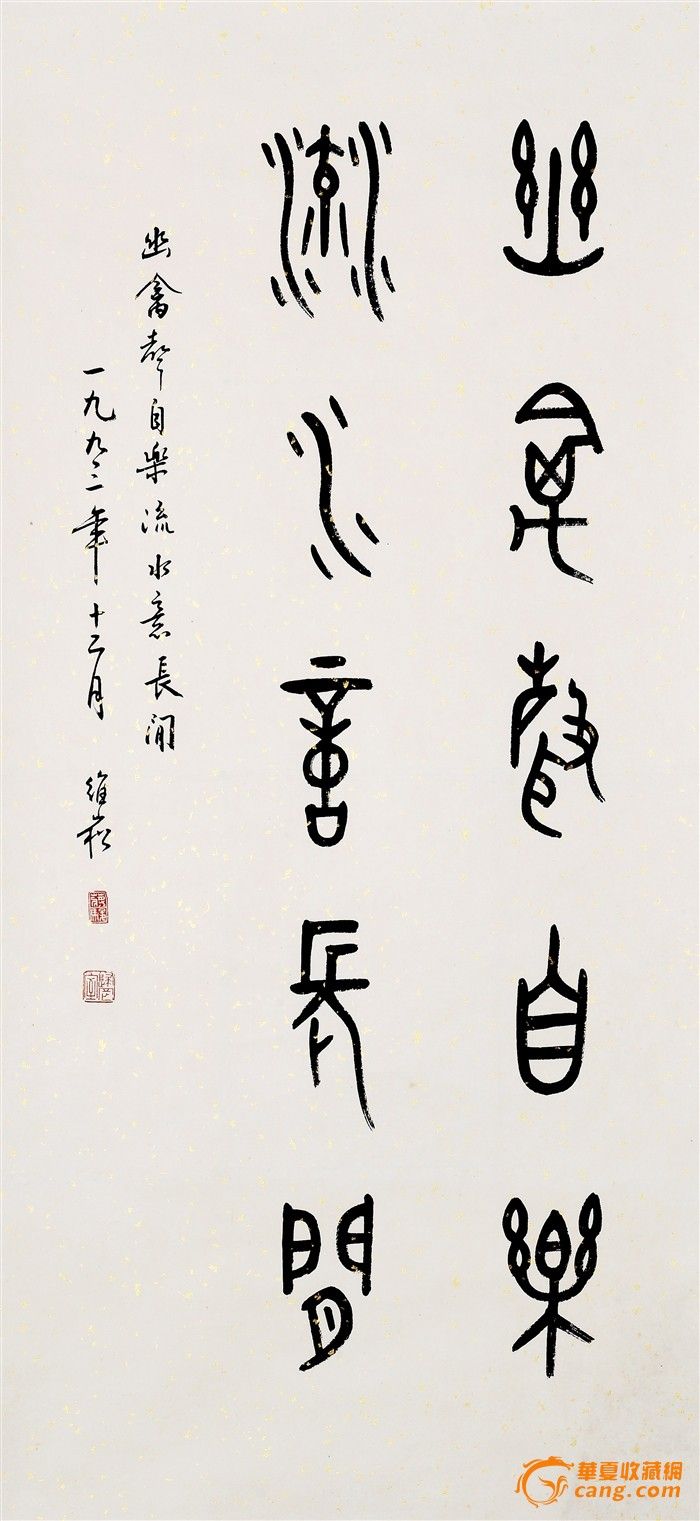 幽禽聲自樂
流水意長閒
幽禽聲自樂流水意長閒
一九九二年十二月 維崧
華夏收藏網
cang.com